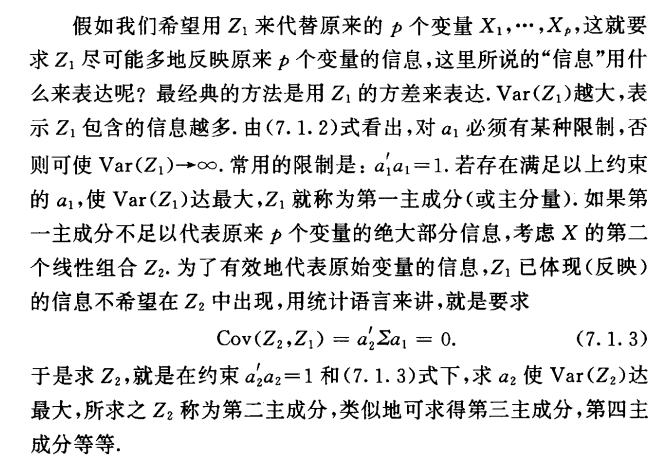 假如我们希望用 Z₁ 来代替原来的 p 个变量 X₁,⋯,Xₚ,这就要
求 Z₁ 尽可能多地反映原来 p 个变量的信息,这里所说的“信息”用什
么来表达呢? 最经典的方法是用 Z₁ 的方差来表达. Var(Z₁)越大,表
示 Z₁ 包含的信息越多. 由(7.1.2)式看出,对 a₁ 必须有某种限制,否
则可使 Var(Z₁)→∞. 常用的限制是: a₁′a₁=1. 若存在满足以上约束
的 a₁,使 Var(Z₁)达最大,Z₁ 就称为第一主成分(或主分量). 如果第
一主成分不足以代表原来 p 个变量的绝大部分信息,考虑 X 的第二
个线性组合 Z₂. 为了有效地代表原始变量的信息,Z₁ 已体现(反映)
的信息不希望在 Z₂ 中出现,用统计语言来讲,就是要求
Cov(Z₂,Z₁) = a₂′Σa₁ = 0. (7.1.3)
于是求 Z₂,就是在约束 a₂′a₂=1 和(7.1.3)式下,求 a₂ 使 Var(Z₂)达
最大,所求之 Z₂ 称为第二主成分,类似地可求得第三主成分,第四主
成分等等.